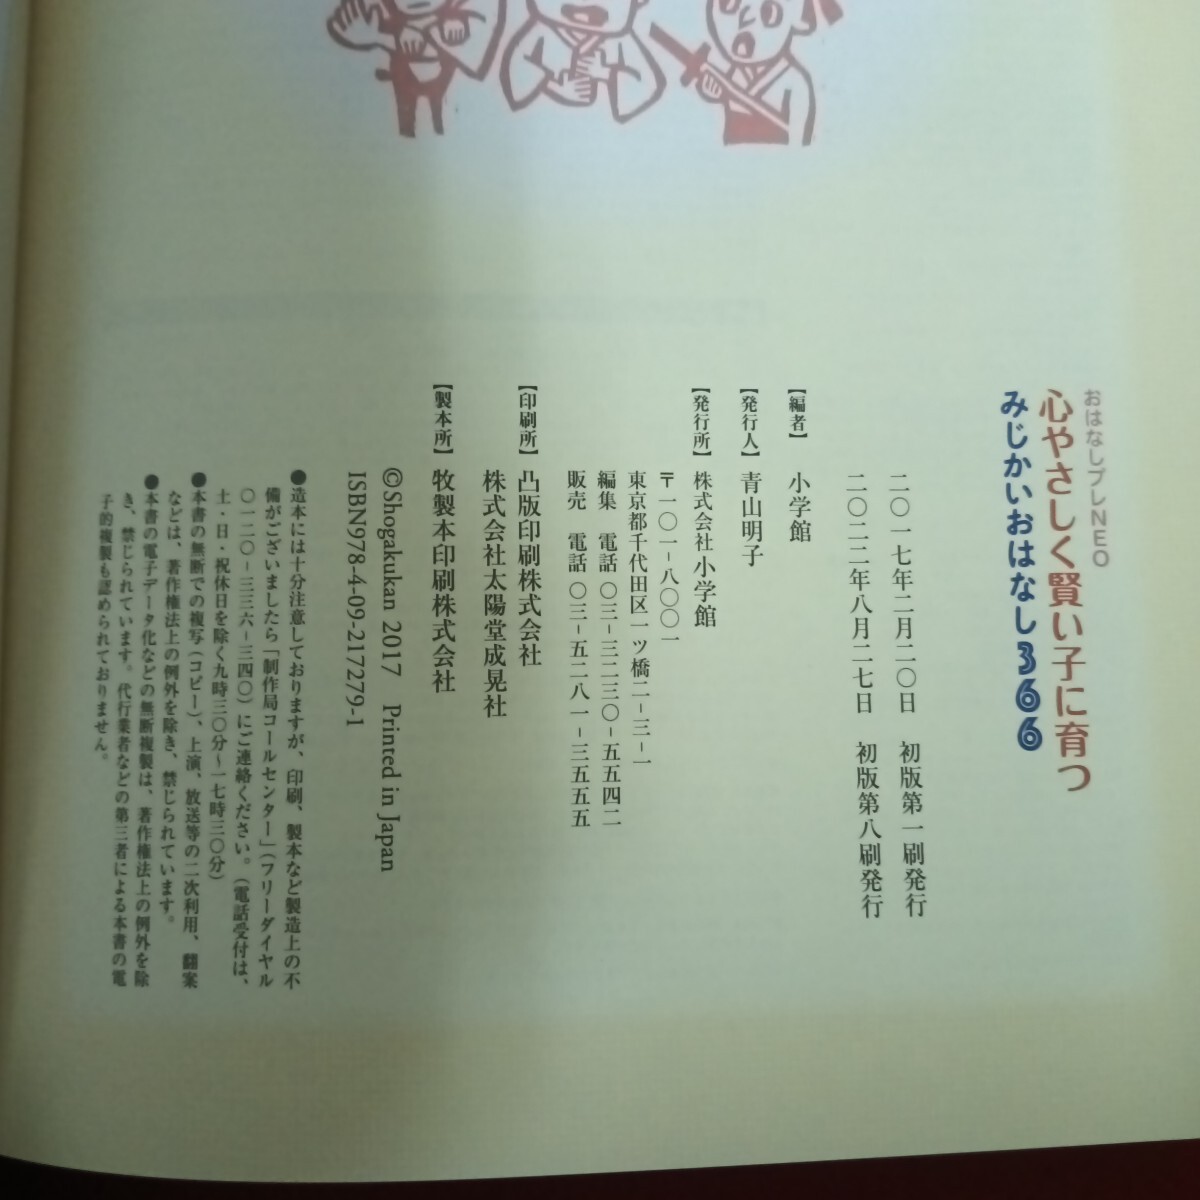 おはなしプレNEO
心やさしく賢い子に育つ
みじかいおはなし366
二〇一七年二月二〇日　初版第一刷発行
二〇二二年八月二七日　初版第八刷発行
【編者】　小学館
【発行人】青山明子
【発行所】株式会社小学館
〒一〇一-八〇〇一
東京都千代田区一ツ橋二-三-一
編集　電話〇三-三二三〇-五五四二
販売　電話〇三-五二八一-三五五五
【印刷所】凸版印刷株式会社
株式会社太陽堂成晃社
【製本所】牧製本印刷株式会社
©Shogakukan 2017　Printed in Japan
ISBN978-4-09-217279-1
●造本には十分注意しておりますが、印刷、製本など製造上の不
備がございましたら「制作局コールセンター」（フリーダイヤル
〇一二〇-三三六-三四〇）にご連絡ください。（電話受付は、
土・日・祝休日を除く九時三〇分〜一七時三〇分）
●本書の無断での複写（コピー）、上演、放送等の二次利用、翻案
などは、著作権法上の例外を除き、禁じられています。
●本書の電子データ化などの無断複製は、著作権法上の例外を除
き、禁じられています。代行業者などの第三者による本書の電
子的複製も認められておりません。